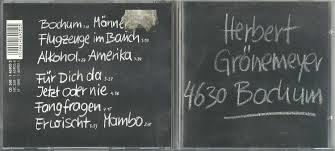 Bochum Männer
Flugzeuge im Bauch
Alkohol Amerika
Für Dich da
Jetzt oder nie
Fangfragen
Erwischt Mambo
Herbert
Grönemeyer
4630 Bochum